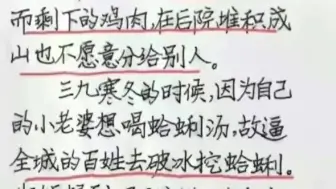 而剩下的鸡肉,在后院堆积成
山也不愿意分给别人。
三九寒冬的时候,因为自己
的小老婆想喝蛤蜊汤,故逼
全城的百姓去破冰挖蛤蜊。